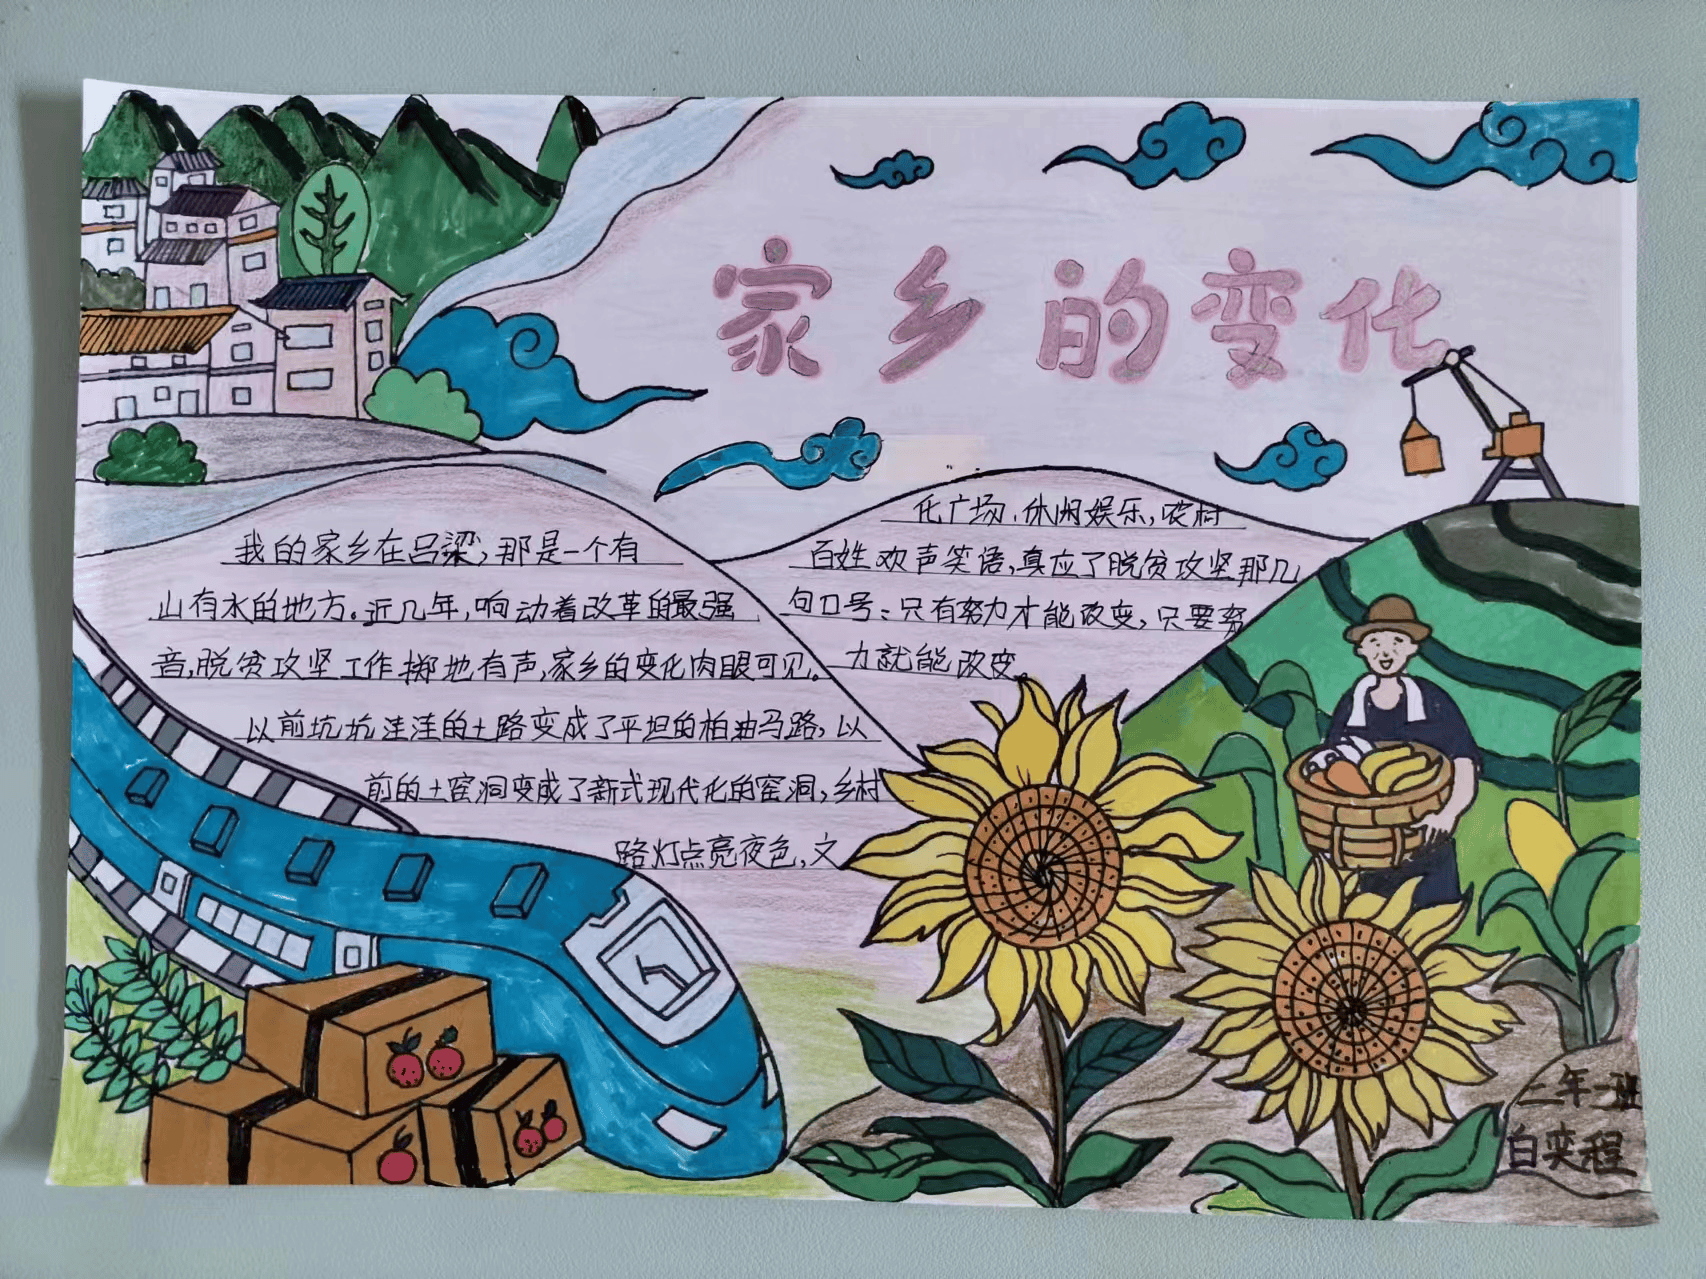 家乡的变化
我的家乡在吕梁，那是一个有
山有水的地方。近几年，响动着改革的最强
音，脱贫攻坚工作掷地有声，家乡的变化肉眼可见。
以前坑坑洼洼的土路变成了平坦的柏油马路，以
前的土窑洞变成了新式现代化的窑洞，乡村
路灯点亮夜色，文
化广场、休闲娱乐，农村
百姓欢声笑语，真应了脱贫攻坚那几
句口号：只有努力才能改变，只要努
力就能改变。
二年一班
白奕程